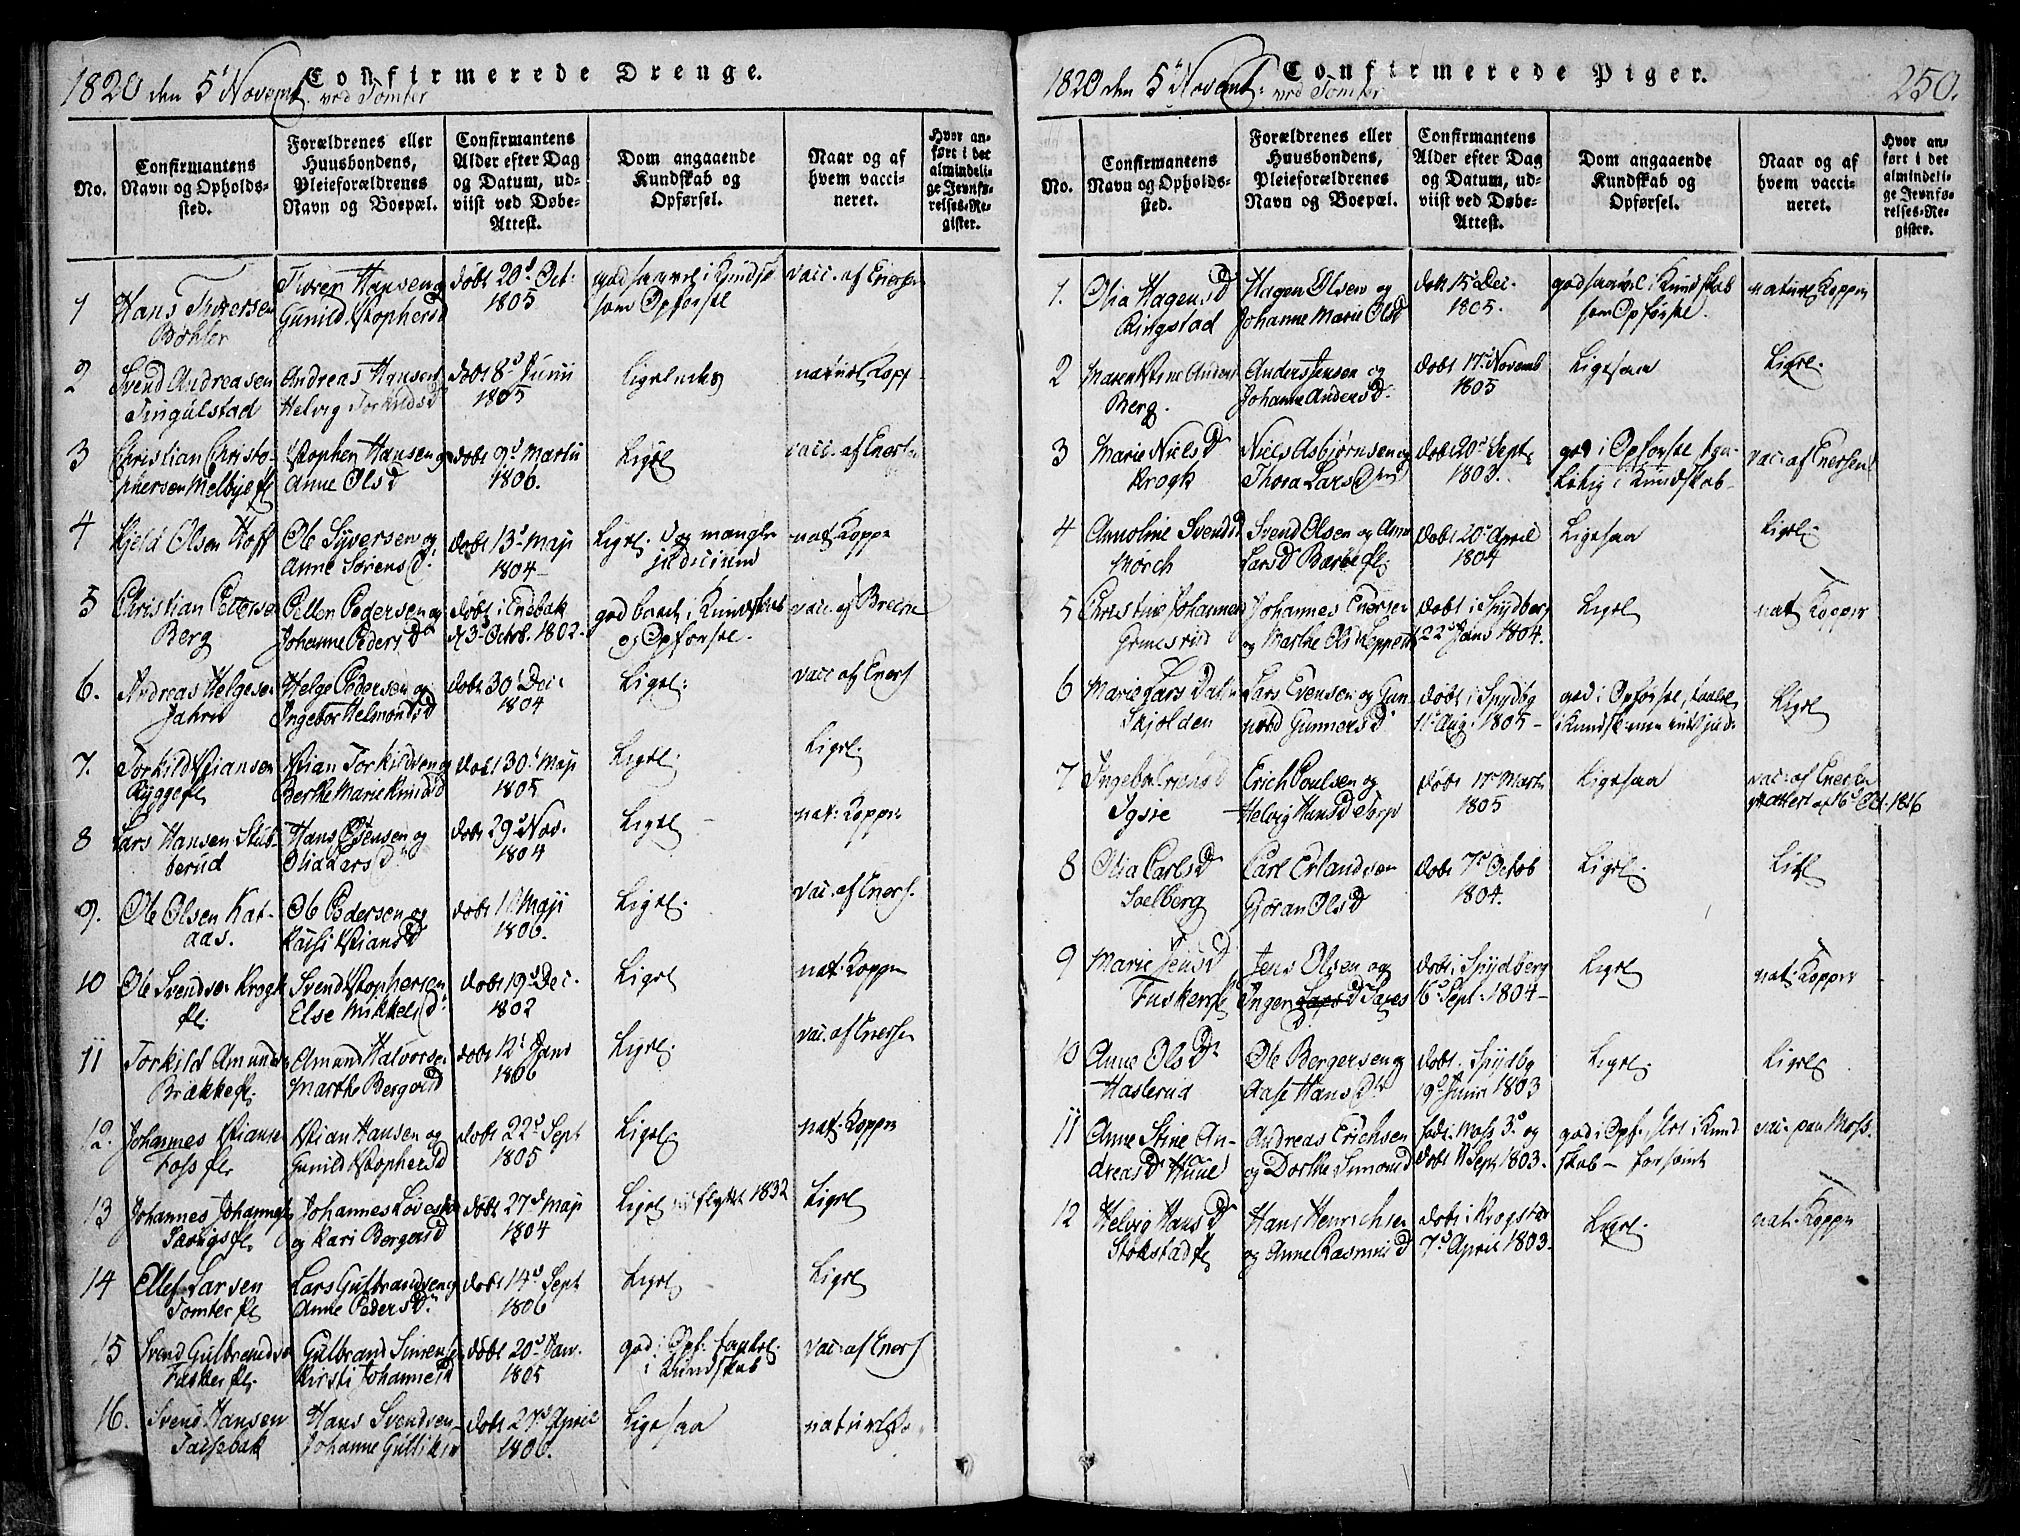 1820 den 5t Novembr. Confirmerede Drenge.
ved Tomter
No.
Confirmantens
Navn og Opholds-
sted.
Forældrenes eller
Huusbondens,
Pleieforældrenes
Navn og Boepæl.
Confirmantens
Alder efter Dag
og Datum, ud-
viist ved Døbe-
Attest.
Dom angaaende
Kundskab og
Opførsel.
Naar og af
hvem vacci-
neret.
Hvor an-
ført i det
almindeli-
ge Jevnfø-
relses-Re-
gister.
1 Hans Iversen
Iver Hansen og
Gunild Xstophersd
døbt 20d Oct:
1805
god saavel i Kundsk
som Opførsel
vacc. af Enersen
2 Svend Andreasen
Tingulstad
Andreas Hansen
Helvig Torkildsd
døbt 8d Junii
1805
Ligeledes
naturl Kopp
3 Christian Christo-
phersen Melbye fl
Xstopher Hansen og
Anne Olsd
døbt 9d Martii
1806.
Ligel
vacc. af Enersen
4 Kjeld Olsen Hoff
Ole Syversen og
Anne Sørensd.
døbt 13d Maji
1804
Ligel. dog mangler
judicium
nat Kopper
5 Christian Pettersen
Berg
Petter Pedersen og
Johanne Pedersd
døbt i Enebak
d 3d Octbr. 1802.
god baade i Kundskab
og Opførsel.
vacc. af Brecke
6. Andreas Helgesen
Jahren
Helge Pedersen og
Ingebor Helmondsd
døbt 30t Dec.
1804
Ligel:
vacc af Eners
7. Torkild Xtiansen
Rygge fl
Xtian Torkildsen og
Berthe Marie Knudsd
døbt 30t Maji
1805
Ligel.
Ligel.
8 Lars Hansen Stub-
berud
Hans Jensen og
Olia Larsd
døbt 29d Nov.
1804
Ligel
nat: Kopper
9. Ole Olsen Kat-
aas.
Ole Pedersen og
Kirsti Xtiansd
døbt Maji
1806.
Ligel.
vac. af Eners.
10 Ole Svendsen Krogh
fl.
Svend Xstophersen
Else Mikkelsd
døbt 19d Dec.
1802
Ligel
nat: Kopper
11 Torkild Amunds
Brække fl.
Amund Halvorsen
Marthe Bergersd
døbt 12t Janr
1806
Ligel.
vac. af Enersen
12. Johannes Xtianse
Foss fl
Xtian Hansen og
Gunild Xstophersd
døbt 22d Sept
1805
Ligel
nat. Kopper
13 Johannes Johannes
fl
Johannes
og Kari Bergersd
døbt 27d Maji
1804
Ligel flyttet 1832
Ligel
14 Ellef Larsen
Tomter fl
Lars Gulbrandsen og
Anne Pedersd
døbt 14d Sept
1806
Ligel
Ligel
15 Svend Gulbrandsen
Fusker fl.
Gulbrand Simensen
Kirsti Johannesd
døbt 20d Jan.
1805
god i Opf:
i Kundskab
vac: af Eners
16. Svend Hansen
Taisebak
Hans Svendsen
Johanne Gulliksd
døbt 27d April
1806.
Ligesaa
naturl
1820 den 5t Novembr: Confirmerede Piger. 250.
ved Tomter
No.
Confirmantens
Navn og Opholds-
sted.
Forældrenes eller
Huusbondens,
Pleieforældrenes
Navn og Boepæl.
Confirmantens
Alder efter Dag
og Datum, ud-
viist ved Døbe-
Attest.
Dom angaaende
Kundskab og
Opførsel.
Naar og af
hvem vacci-
neret.
Hvor an-
ført i det
almindeli-
ge Jevnfø-
relses-Re-
gister.
1. Olia Hagensd
Ringstad
Hagen Olsen og
Johanne Marie Olsd
døbt 15t Dec.
1805.
god saavel i Kundskab
som Opførsel.
naturl Kopper
2 Maren Stine Anders
Berg.
Anders Jensen og
Johanne Andersd.
døbt 17d Novemb
1805
Ligesaa
Ligel.
3 Marie Nielsd
Krogh
Niels Asbjørnsen og
Thora Larsd
døbt 20d Sept.
1803.
god i Opførsel
i Kundskab
vac: af Enersen
4 Annoline Svendsd
Mørch
Svend Olsen og Anne
Larsd fl.
døbt 20d April
1804
Ligesaa
Ligel:
5 Christine Johannesd
Johannes Enersen
og Marthe
døbt i Spydberg
22d Janr 1804.
Ligel
nat Kopper
6 Marie Lars Datr
Skjolden
Lars Evensen og Gun-
nord Gunnersd
døbt i Spydbg
11t Aug. 1805
god i Opførsel,
i Kundsk men
Ligel
7 Ingebor
Sysse
Erich Poulsen og
Helvig Hansd Torp
døbt 17d Martii
1805
Ligesaa
vac: af Enersen
attest af 16d Oct. 1816
8 Olia Carlsd
Solberg
Carl Erlandsen
Gjøran Olsd
døbt 7d Octob
1804.
Ligel.
9 Marie Jensd
Fusker fl
Jens Olsen og
Inger
døbt i Spydberg
16d Sept: 1804
Ligel
nat: Kopper
10 Anne Olsd
Haslerud
Ole Bergersen og
Aase Hansd
døbt i Spydbg
19d Junii 1803
Ligel.
Ligel
11 Anne Stine An-
dreasd Huue
Andreas Erichsen
og Dorthe Simonsd
fød i Moss 3d og
døbt 11 Sept 1803.
god i Opf. i Kund
skab forsømt
vac. paa Moss.
12 Helvig Hansd
Stokstad fl
Hans Henrichsen
og Anne Rasmusd
døbt i Krogstad
7d April 1803
Ligel.
nat: Kopper